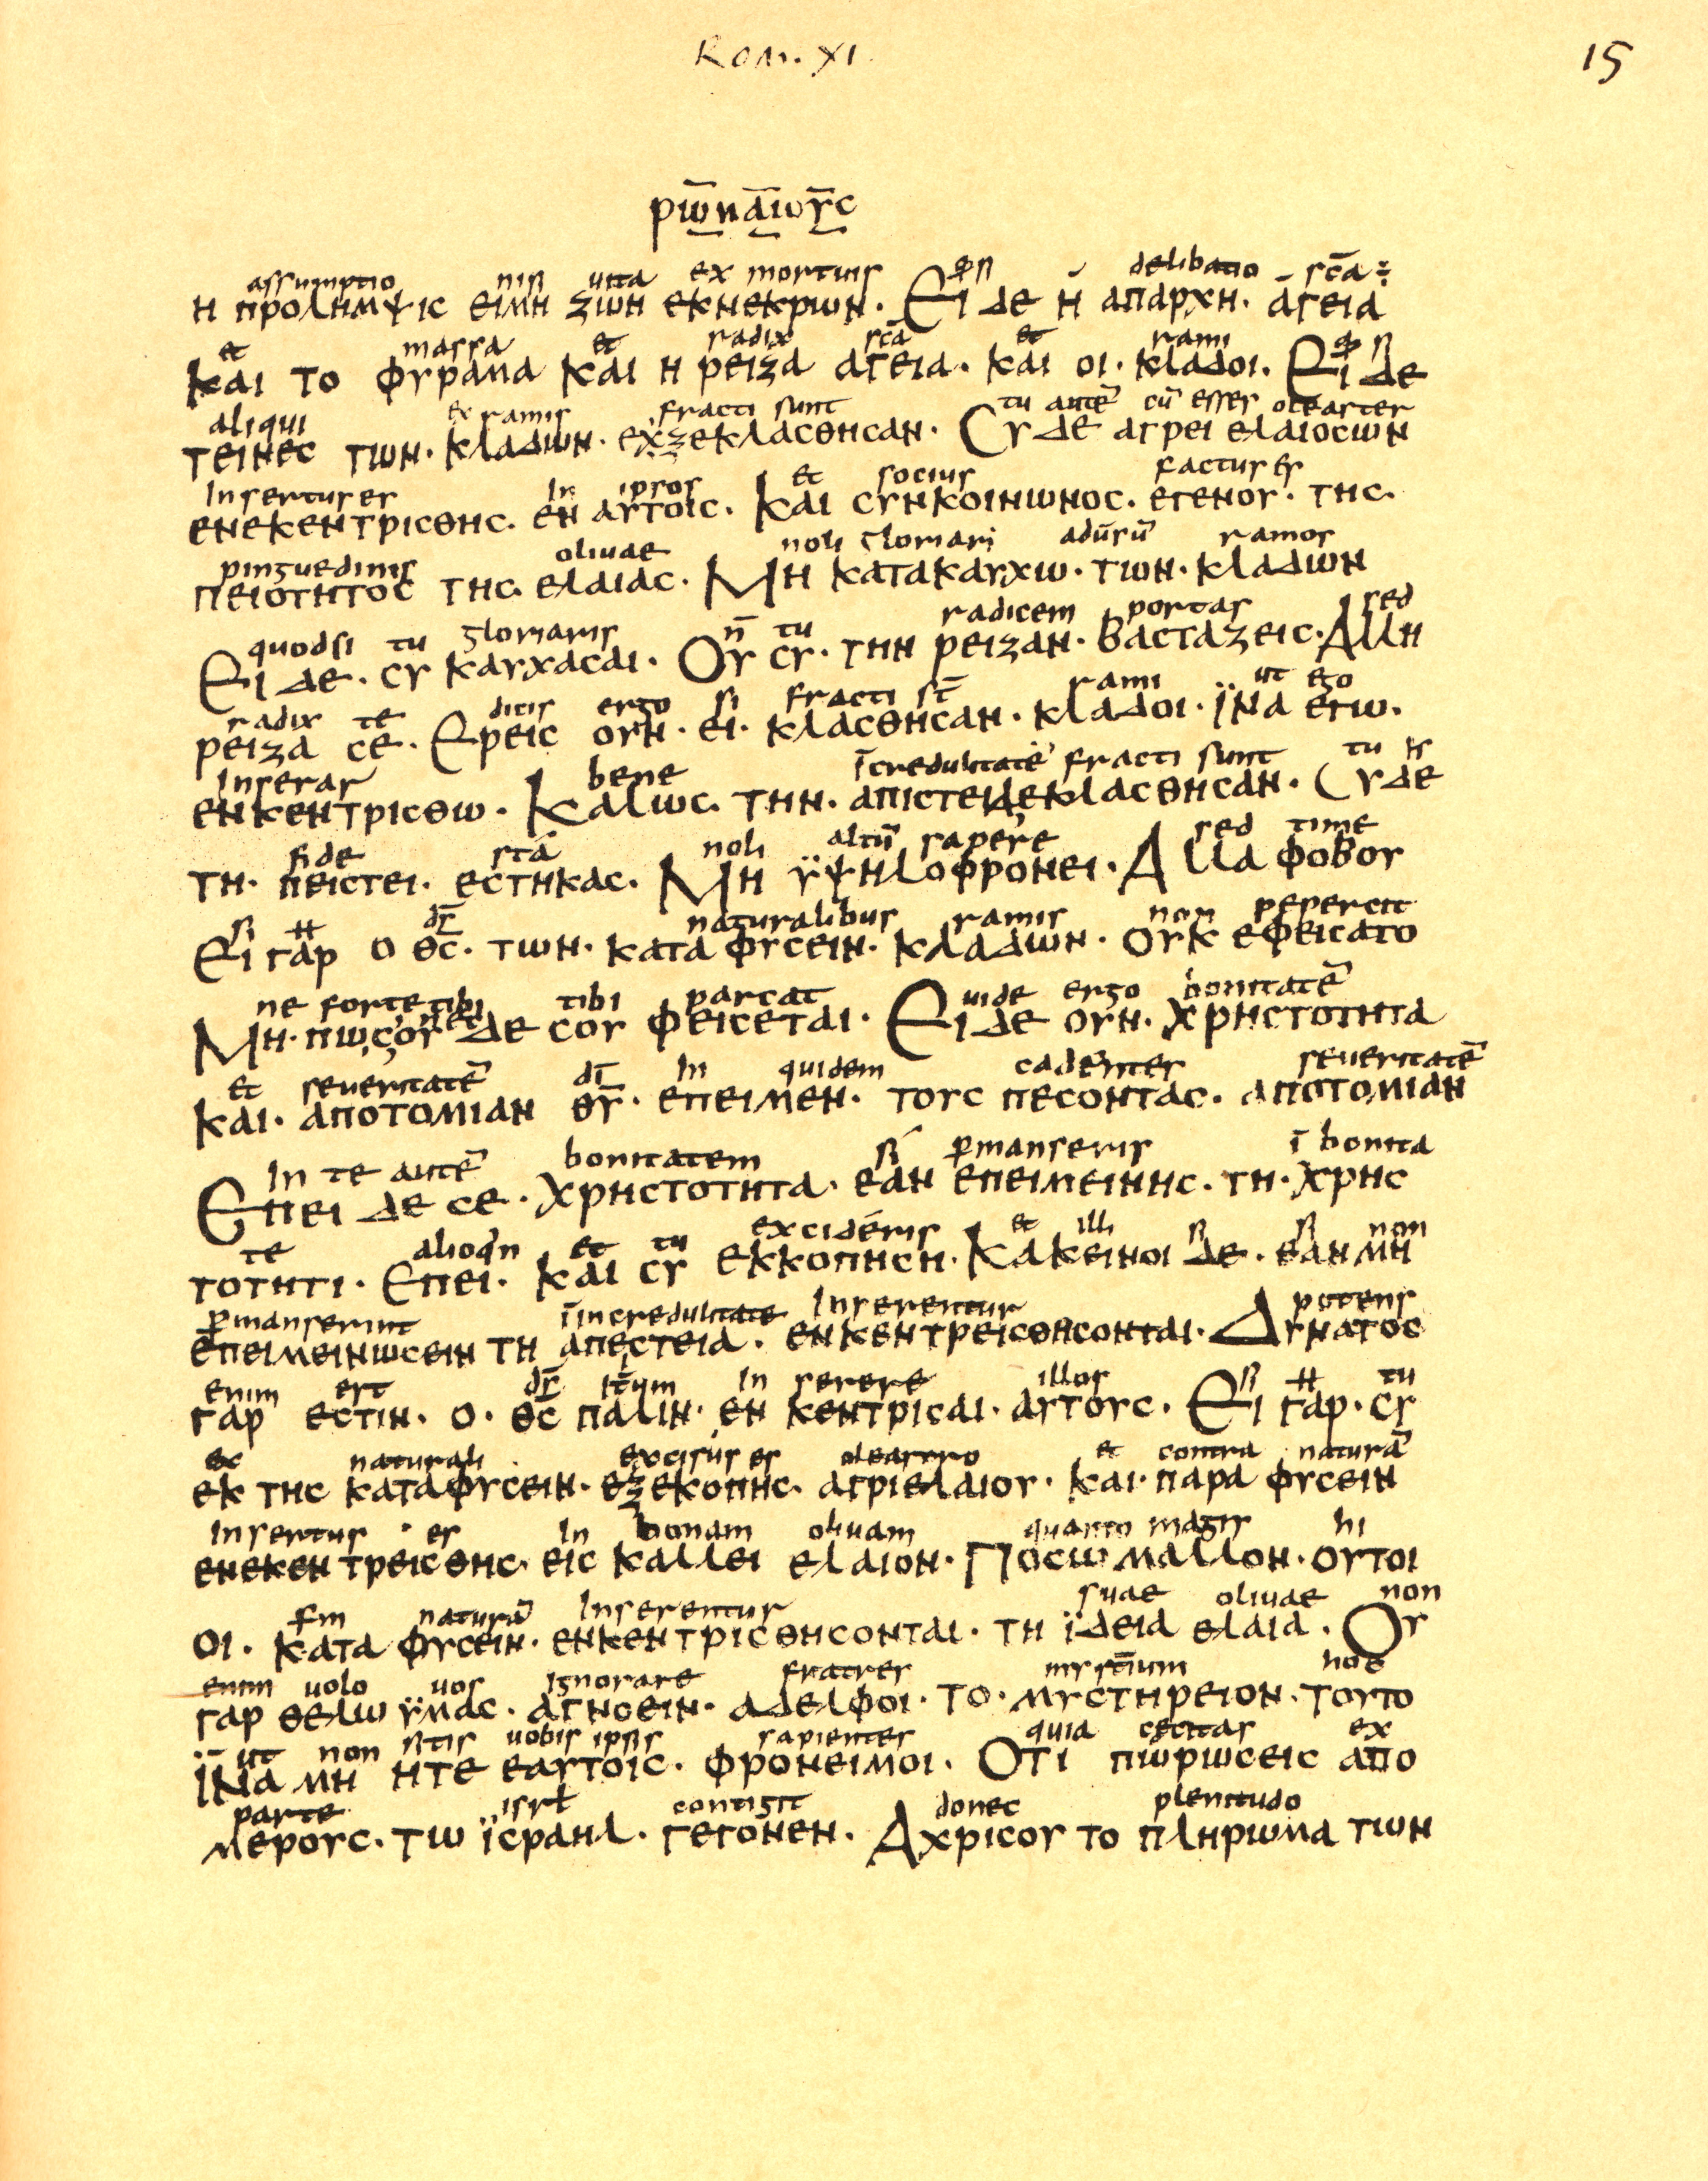 Rom. XI.
15
ρωмαιογс
assumptio nisi uita ex mortuis qđ si delibatio sc̄a
н προλημψις ειμη ζωη εκνεκρων. Ει δε η απαρχη. αγεια
et massa et radix sc̄a et rami qđ si
και το φυραμα και η ρειζα αγεια. και οι. κλαδοι. Ει δε
aliqui ex ramis fracti sunt tu autē cū esses oleaster
τεινες των. κλαδων. εχξεκλασθησαν. Cυ δε αγρει ελαιοςων
Insertus es In ipsos et socius factus es
ενεκεντρισθης. εν αυτοις. και συνκοινωνος. εγενου. της.
pinguedinis oliuae noli gloriari aduersū ramos
πειοτητος της. ελαιας. Μη κατακαυχω. των. κλαδων
quodsi tu gloriaris n̄ tu radicem portas sed
Ει δε. συ καυχασαι. Ου συ. την ρειζαν. βασταζεις. Αλλη
radix te dicis ergo si fracti st̄ rami ut ego
ρειζα σε. Ερεις ουν. ει. κλασθησαν. κλαδοι. ϊνα εγω.
Inserar bene īcredulitatē fracti sunt tu
ενκεντρισθω. Καλως. την. απιστειδεκλασθησαν. Cυ δε
fide sta noli altū sapere sed time
τη. πειστει. εστηκας. Μη ϋψηλοφρονει. Αλλα φοβου
si ds̄ naturalibus ramis non pepercit
Ει γαρ ο θ̄ς̄. των. κατα φυσειν. κλαδων. ουκ εφεισατο
ne forte tibi nec tibi parcat uide ergo bonitatē
Μη. πως ου δε σου φεισεται. Ειδε ουν. χρηστοτητα
et seueritatē dī In quidem cadentes seueritatē
και. αποτομιαν θ̄ῡ. επειμεν. τους πεσοντας. αποτομιαν
In te autē bonitatem si p̄manseris ī bonita
Επει δε σε. χρηστοτητα. εαν επειμεινης. τη. χρης
te alioqn et tu excideris et illi si non
τοτητι. Επει. και συ εκκοπηση. Κακεινοι δε. εαν μη
p̄manserint īincredulitate Inserentur potens
επειμεινωσειν τη απεστεια. ενκεντρεισθησονται. Δυνατος
enim est ds̄ It̄um In serere illos si tu
γαρ εστιν. ο. θ̄ς̄ παλιν. εν κεντρισαι. αυτους. Ει γαρ. συ
ex naturali excisus es oleastro et contra naturā
εκ της καταφυσειν. εξεκοπης. αγριελαιου. και. παρα φυσειν
Insertus es In bonam oliuam quanto magis hi
ενεκεντρεισθης. εις καλλει ελαιον. Ποσω μαλλον. ουτοι
naturā Inserentur suae oliuae non
οι. κατα φυσειν. ενκεντρισθησονται. τη ϊδεια ελαια. Ου
enim uolo uos Ignorare fratres mysterium hoc
γαρ θελω ϋμας. αγνοειν. αδελφοι. το. μυστηρειον. τουτο
ut non sitis uobis ipsis sapientes quia cecitas ex
ϊνα μη ητε εαυτοις. φρονειμοι. Οτι πωρωσεις απο
parte isrł contigit donec plenitudo
μερους. τω ϊσραηλ. γεγονεν. Αχρισου το πληρωμα των